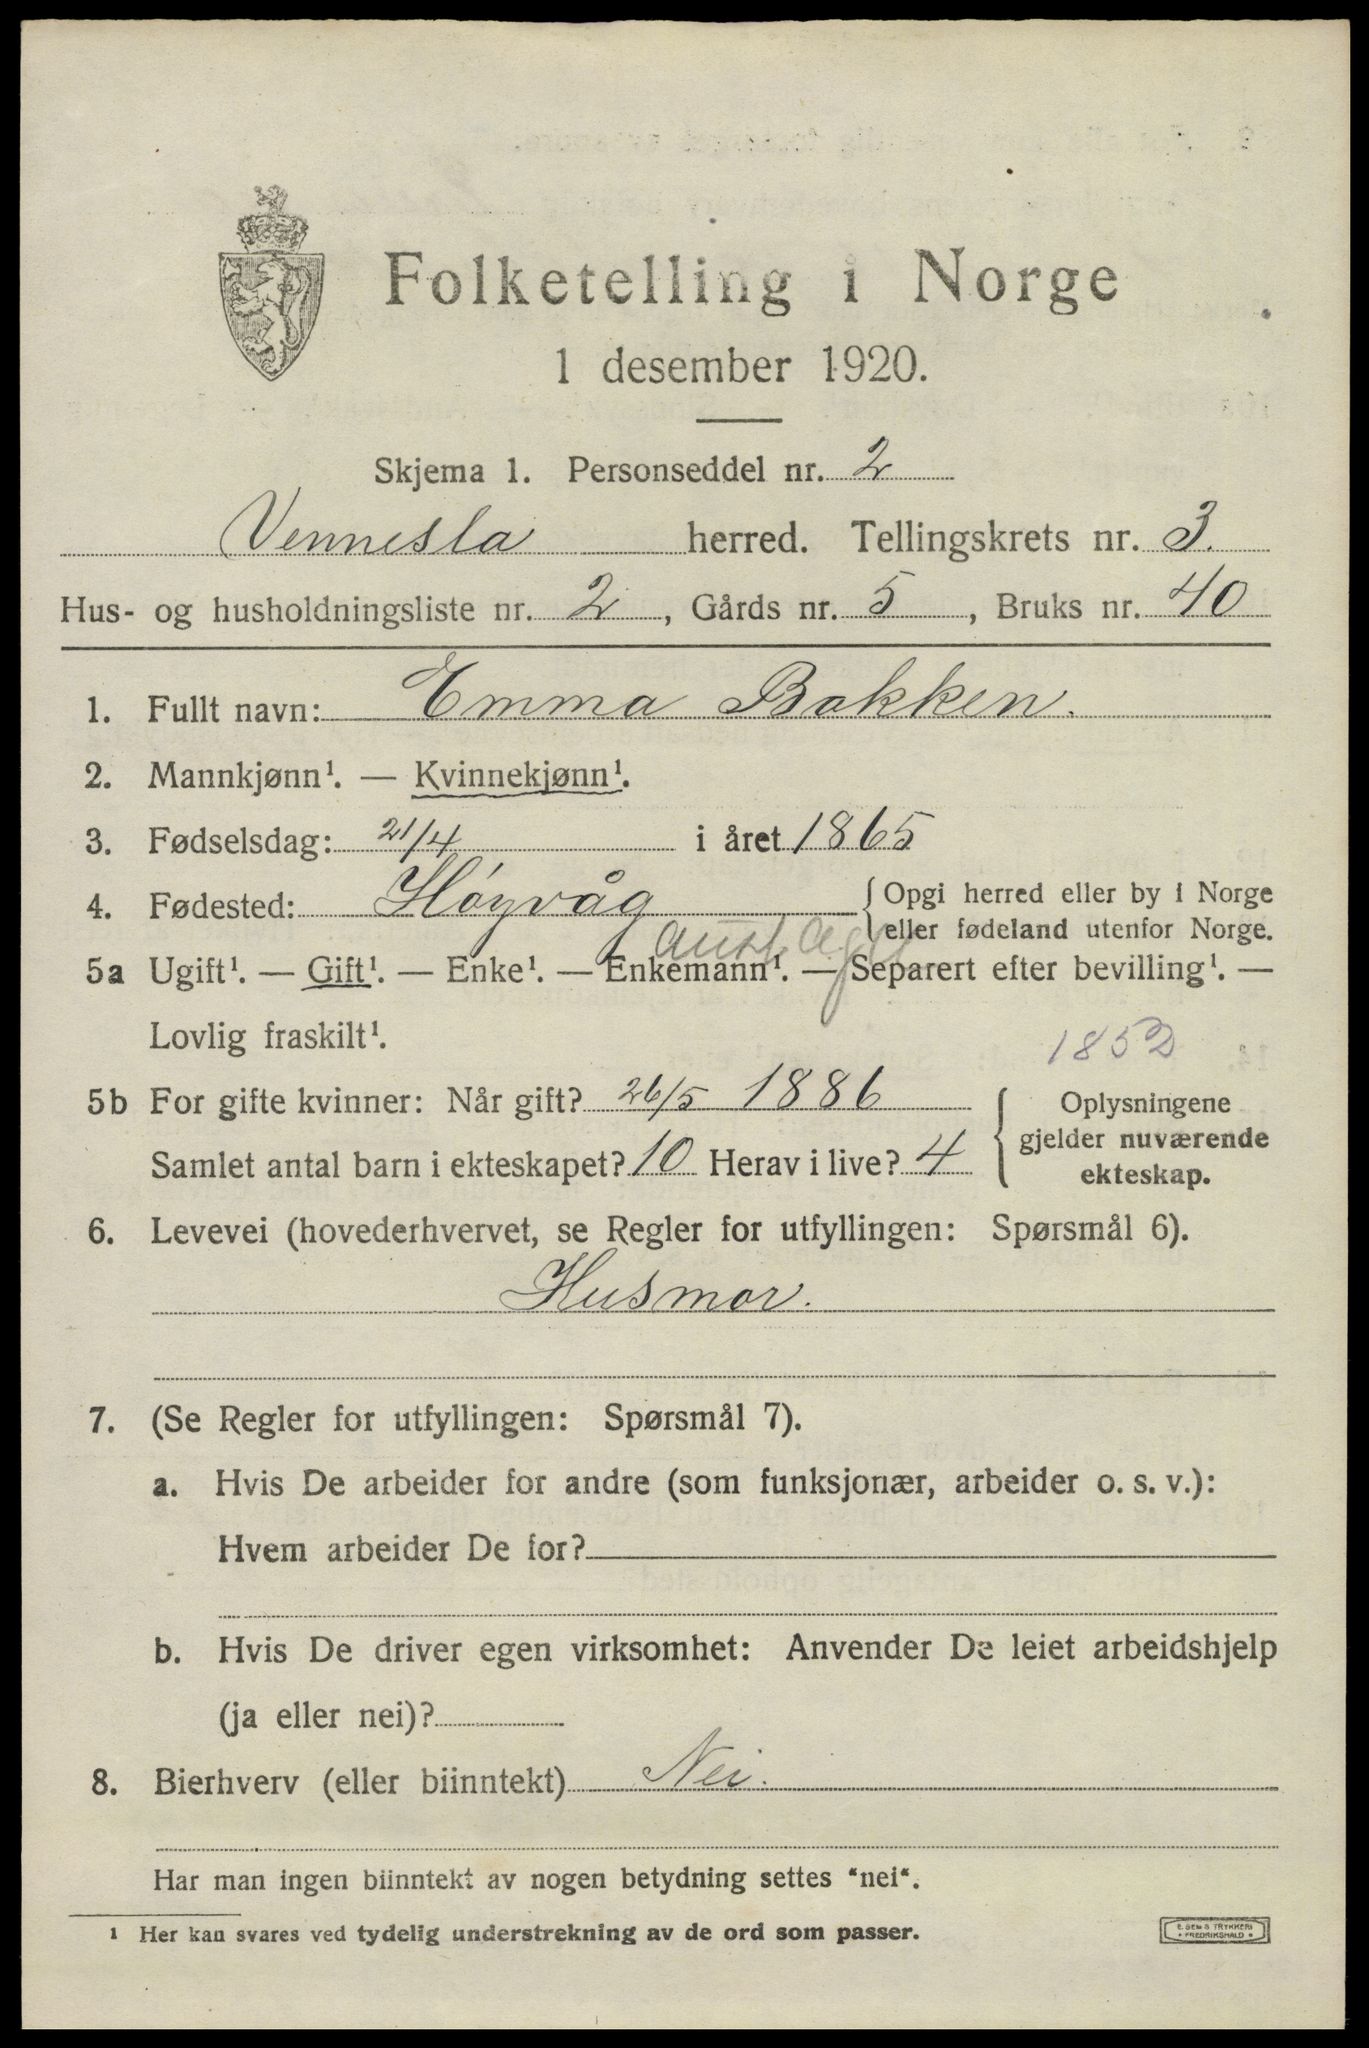 Folketelling i Norge
1 desember 1920.
Skjema 1. Personseddel nr. 2
Vennesla herred. Tellingskrets nr. 3.
Hus- og husholdningsliste nr. 2, Gårds nr. 5, Bruks nr. 40
1. Fullt navn: Emma Bakken.
2. Mannkjønn¹. — Kvinnekjønn¹.
3. Fødselsdag: 21/4 i året 1865
4. Fødested: Høyvåg { Opgi herred eller by i Norge
eller fødeland utenfor Norge.
Aust. Agd.
5a Ugift¹. — Gift¹. — Enke¹. — Enkemann¹. — Separert efter bevilling¹. —
Lovlig fraskilt¹.
1852
5b For gifte kvinner: Når gift? 26/5 1886
Samlet antal barn i ekteskapet? 10 Herav i live? 4
Oplysningene
gjelder nuværende
ekteskap.
6. Levevei (hovederhvervet, se Regler for utfyllingen: Spørsmål 6).
Husmor.
7. (Se Regler for utfyllingen: Spørsmål 7).
a. Hvis De arbeider for andre (som funksjonær, arbeider o. s. v.):
Hvem arbeider De for?
b. Hvis De driver egen virksomhet: Anvender De leiet arbeidshjelp
(ja eller nei)?
8. Bierhverv (eller biinntekt) Nei.
Har man ingen biinntekt av nogen betydning settes "nei".
¹ Her kan svares ved tydelig understrekning av de ord som passer.
E. SEM S TRYKKERI
• FREDRIKSHALD •